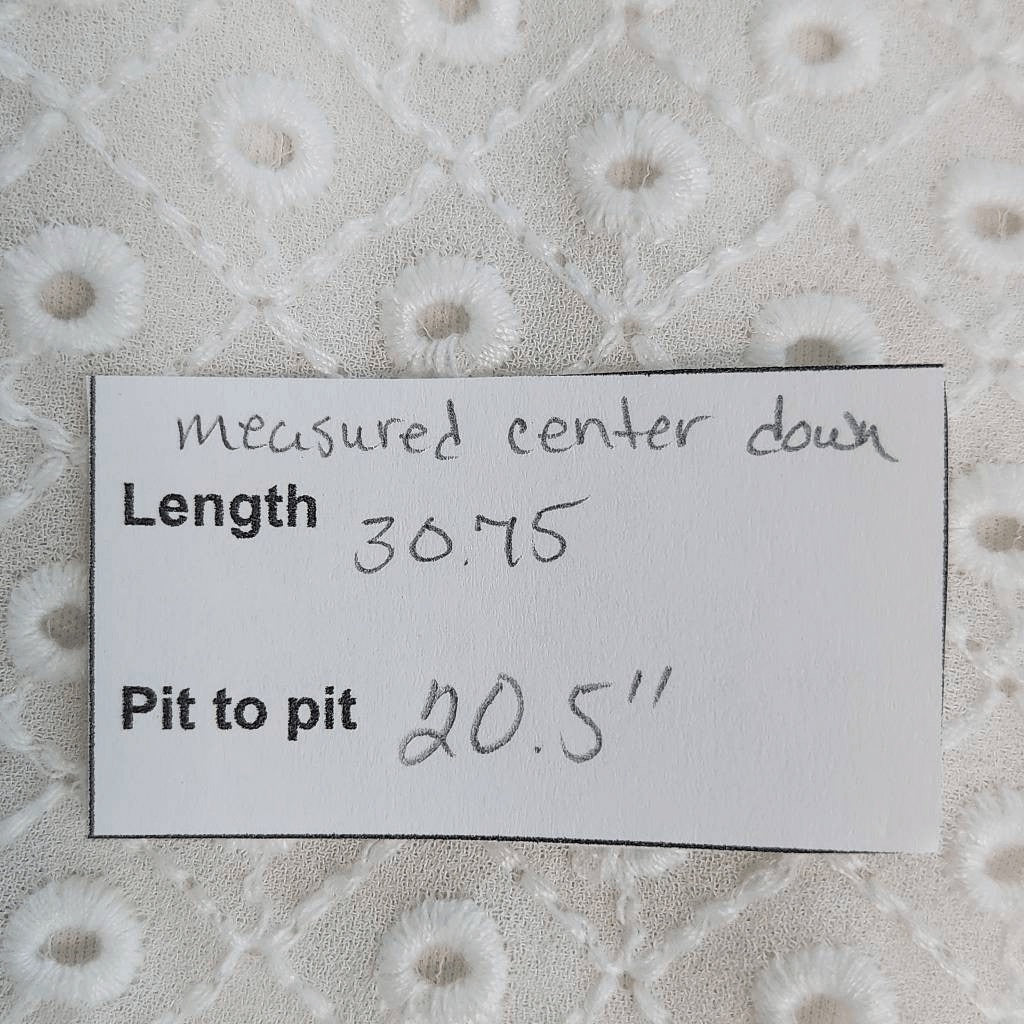 measured center down
Length 30.75
Pit to pit 20.5"